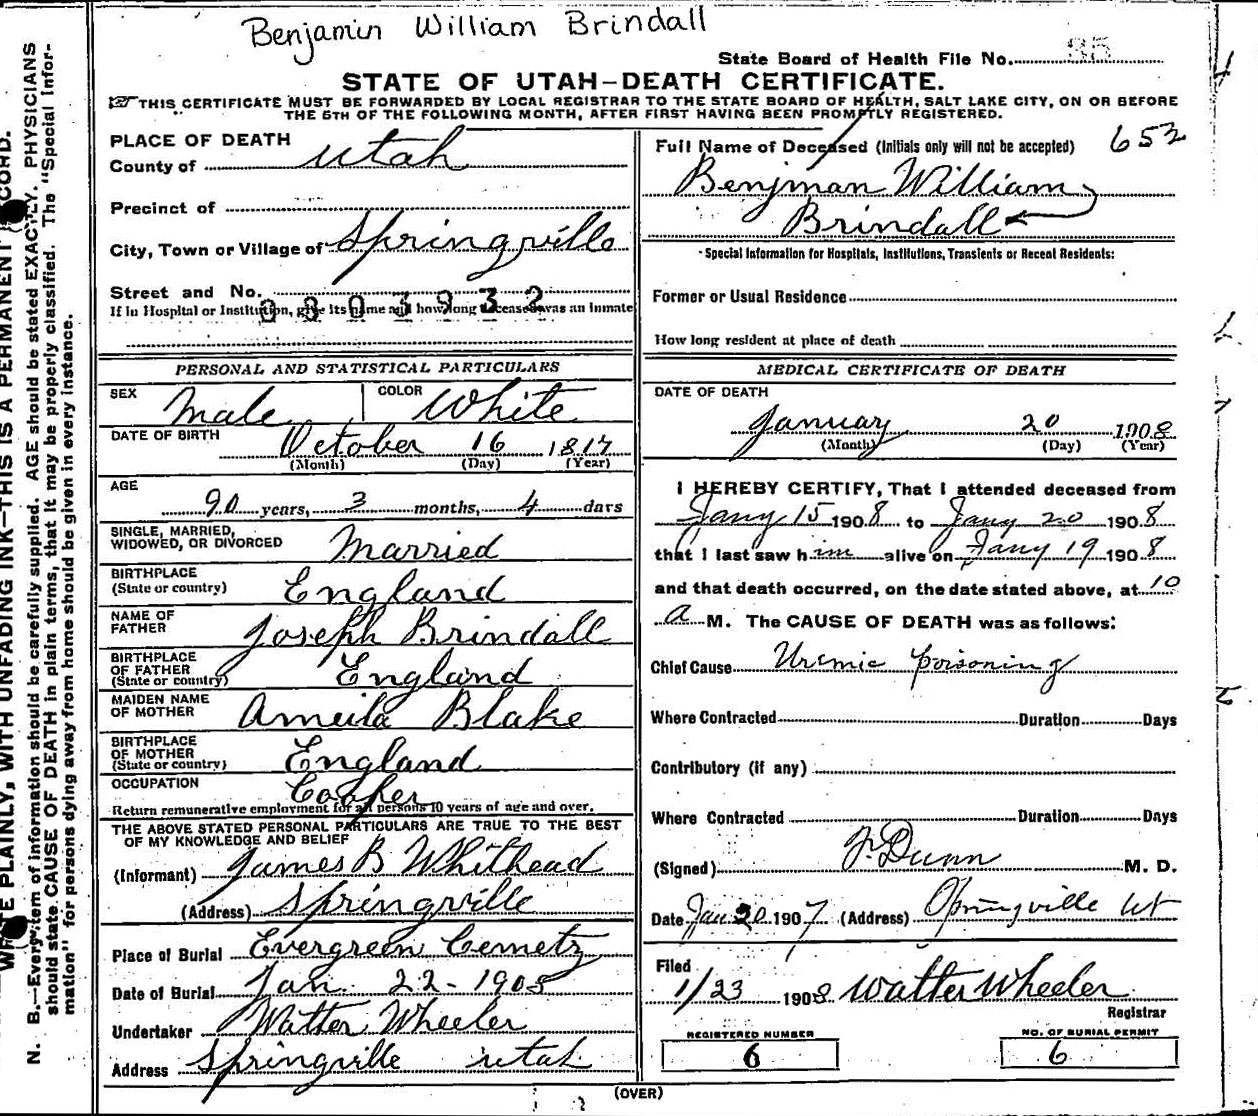 Benjamin William Brindall
State Board of Health File No. 35
STATE OF UTAH—DEATH CERTIFICATE.
THIS CERTIFICATE MUST BE FORWARDED BY LOCAL REGISTRAR TO THE STATE BOARD OF HEALTH, SALT LAKE CITY, ON OR BEFORE
THE 5TH OF THE FOLLOWING MONTH, AFTER FIRST HAVING BEEN PROMPTLY REGISTERED.
PLACE OF DEATH
County of Utah
Precinct of
City, Town or Village of Springville
Street and No.
If in Hospital or Institution, give its name and how long deceased was an inmate
PERSONAL AND STATISTICAL PARTICULARS
SEX Male COLOR White
DATE OF BIRTH October 16 1817
(Month) (Day) (Year)
AGE
90 years, 3 months, 4 days
SINGLE, MARRIED,
WIDOWED, OR DIVORCED Married
BIRTHPLACE
(State or country) England
NAME OF
FATHER Joseph Brindall
BIRTHPLACE
OF FATHER
(State or country) England
MAIDEN NAME
OF MOTHER Ameila Blake
BIRTHPLACE
OF MOTHER
(State or country) England
OCCUPATION Cooper
Return remunerative employment for all persons 10 years of age and over.
THE ABOVE STATED PERSONAL PARTICULARS ARE TRUE TO THE BEST
OF MY KNOWLEDGE AND BELIEF
(Informant) James B Whithead
(Address) Springville
Place of Burial Evergreen Cemetz
Date of Burial Jan 22-1908
Undertaker Walter Wheeler
Address Springville utah
652
Full Name of Deceased (Initials only will not be accepted)
Benjman William
Brindall
Special Information for Hospitals, Institutions, Transients or Recent Residents:
Former or Usual Residence
How long resident at place of death
MEDICAL CERTIFICATE OF DEATH
DATE OF DEATH
January 20 1908
(Month) (Day) (Year)
I HEREBY CERTIFY, That I attended deceased from
Jany 15 1908 to Jany 20 1908
that I last saw him alive on Jany 19 1908
and that death occurred, on the date stated above, at 10
a M. The CAUSE OF DEATH was as follows:
Chief Cause Uremic poisoning
Where Contracted Duration Days
Contributory (if any)
Where Contracted Duration Days
(Signed) F. Dunn M. D.
Date Jan 20 1907 (Address) Springville Ut
Filed
1/23 1908 Walter Wheeler
Registrar
REGISTERED NUMBER
6
NO. OF BURIAL PERMIT
6
(OVER)
N. B.—Every item of information should be carefully supplied. AGE should be stated EXACTLY. PHYSICIANS
should state CAUSE OF DEATH in plain terms, that it may be properly classified. The "Special Infor-
mation" for persons dying away from home should be given in every instance.
PLAINLY, WITH UNFADING INK—THIS IS A PERMANENT